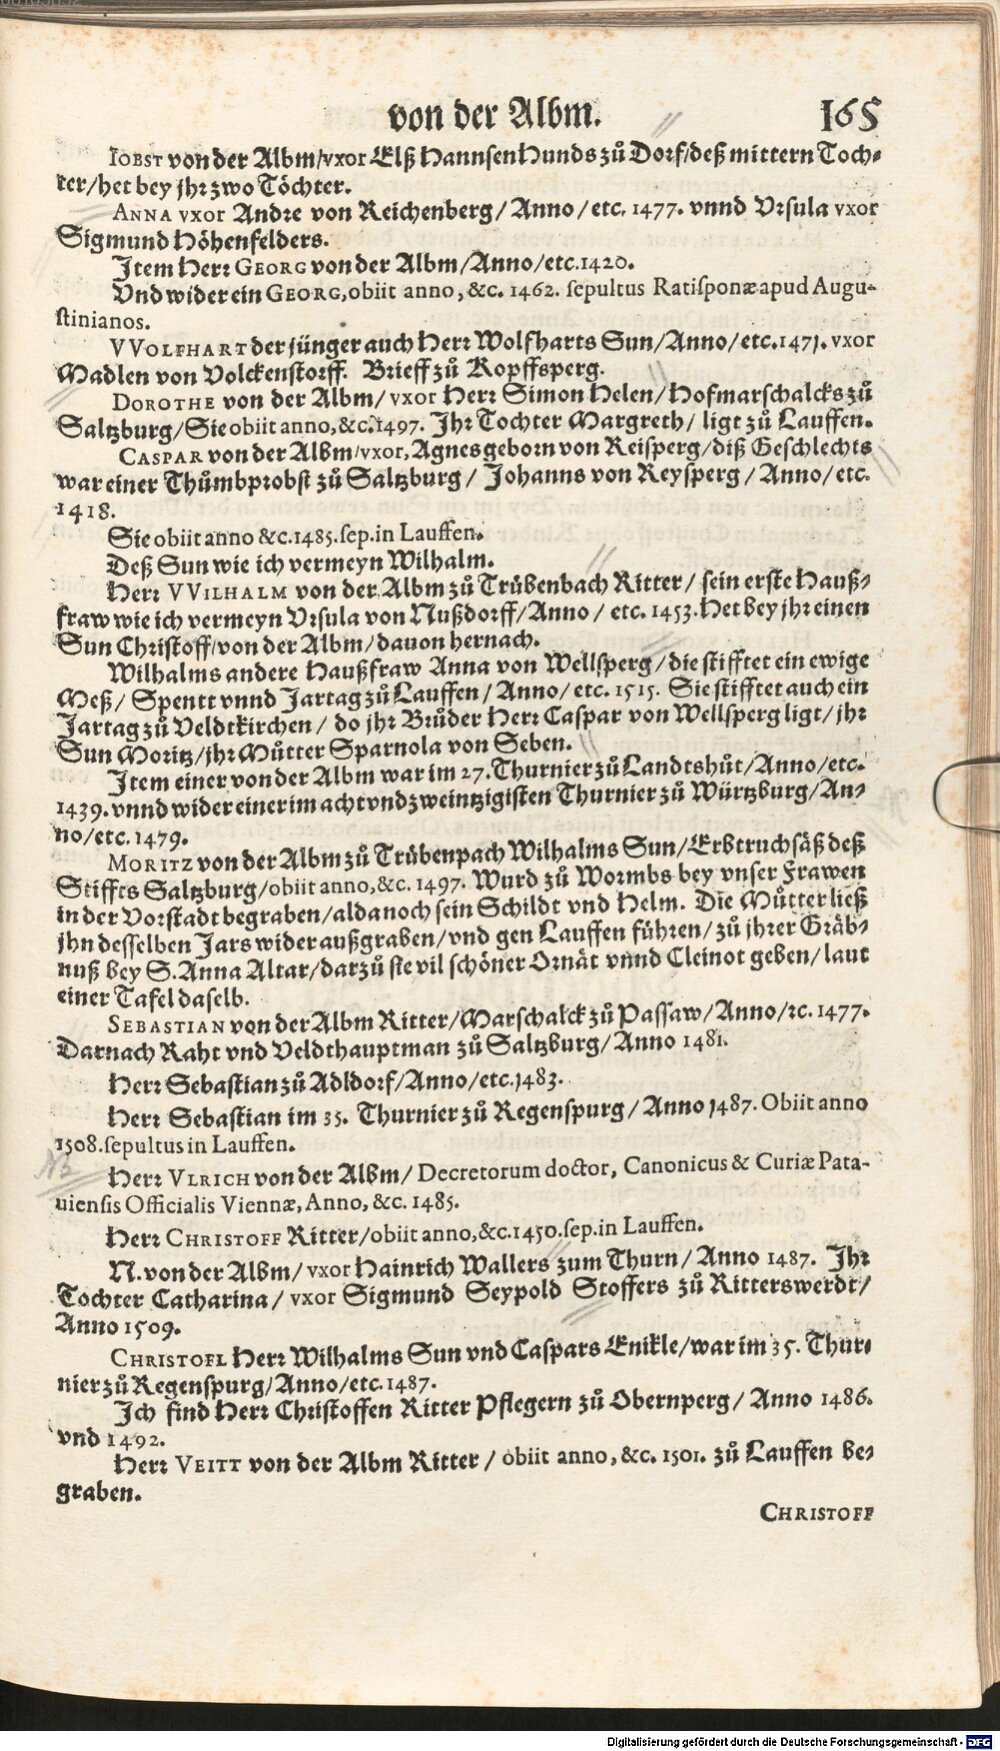 von der Albm. 165
IOBST von der Albm/vxor Elß Hannsen Hunds zů Dorf/deß mittern Toch-
ter/het bey jhr zwo Töchter.
ANNA vxor Andre von Reichenberg/Anno/etc. 1477. vnnd Vrsula vxor
Sigmund Höhenfelders.
Item Herr GEORG von der Albm/Anno/etc. 1420.
Vnd wider ein GEORG, obiit anno, &c. 1462. sepultus Ratisponæ apud Augu-
stinianos.
VVOLFHART der jünger auch Herr Wolfharts Sun/Anno/etc. 1471. vxor
Madlen von Volckenstorff. Brieff zů Kopffsperg.
DOROTHE von der Albm/ vxor Herr Simon Helen/Hofmarschalcks zů
Saltzburg/Sie obiit anno, &c. 1497. Ihr Tochter Margreth/ ligt zů Lauffen.
CASPAR von der Albm/vxor, Agnes geborn von Reisperg/diß Geschlechts
war einer Thůmbprobst zů Saltzburg/ Johanns von Reysperg/Anno/etc.
1418.
Sie obiit anno &c. 1485. sep. in Lauffen.
Deß Sun wie ich vermeyn Wilhalm.
Herr VVILHALM von der Albm zů Trůbenbach Ritter/ sein erste Hauß-
fraw wie ich vermeyn Vrsula von Nußdorff/Anno/ etc. 1453. Het bey jhr einen
Sun Christoff/von der Albm/dauon hernach.
Wilhalms andere Haußfraw Anna von Wellsperg/die stifftet ein ewige
Meß/ Spentt vnnd Jartag zů Lauffen/Anno/etc. 1515. Sie stifftet auch ein
Jartag zů Veldtkirchen/ do jhr Brůder Herr Caspar von Wellsperg ligt/jhr
Sun Moritz/jhr Můtter Sparnola von Seben.
Item einer von der Albm war im 27. Thurnier zů Landtshůt/Anno/etc.
1439. vnnd wider einer im acht vnd zweintzigisten Thurnier zů Würtzburg/An-
no/etc. 1479.
MORITZ von der Albm zů Trůbenpach Wilhalms Sun/Erbtruchsäß deß
Stiffts Saltzburg/obiit anno, &c. 1497. Wurd zů Wormbs bey vnser Frawen
in der Vorstadt begraben/alda noch sein Schildt vnd Helm. Die Můtter ließ
jhn desselben Jars wider außgraben/vnd gen Lauffen führen/zů jhrer Gräb-
nuß bey S. Anna Altar/darzů sie vil schöner Ornät vnnd Cleinot geben/laut
einer Tafel daselb.
SEBASTIAN von der Albm Ritter/Marschalck zů Passaw/Anno/ꝛc. 1477.
Darnach Raht vnd Veldthauptman zů Saltzburg/Anno 1481.
Herr Sebastian zů Adldorf/Anno/etc. 1483.
Herr Sebastian im 35. Thurnier zů Regenspurg/Anno 1487. Obiit anno
1508. sepultus in Lauffen.
NB
Herr VLRICH von der Albm/ Decretorum doctor, Canonicus & Curiæ Pata-
uiensis Officialis Viennæ, Anno, &c. 1485.
Herr CHRISTOFF Ritter/obiit anno, &c. 1450. sep. in Lauffen.
N. von der Albm/ vxor Hainrich Wallers zum Thurn/ Anno 1487. Ihr
Tochter Catharina/ vxor Sigmund Seypold Stoffers zů Ritterswerdt/
Anno 1509.
CHRISTOFL Herr Wilhalms Sun vnd Caspars Enikle/war im 35. Thur-
nier zů Regenspurg/Anno/etc. 1487.
Ich find Herr Christoffen Ritter Pflegern zů Obernperg/ Anno 1486.
vnd 1492.
Herr VEITT von der Albm Ritter/ obiit anno, &c. 1501. zů Lauffen be-
graben.
CHRISTOFF
Digitalisierung gefördert durch die Deutsche Forschungsgemeinschaft - DFG